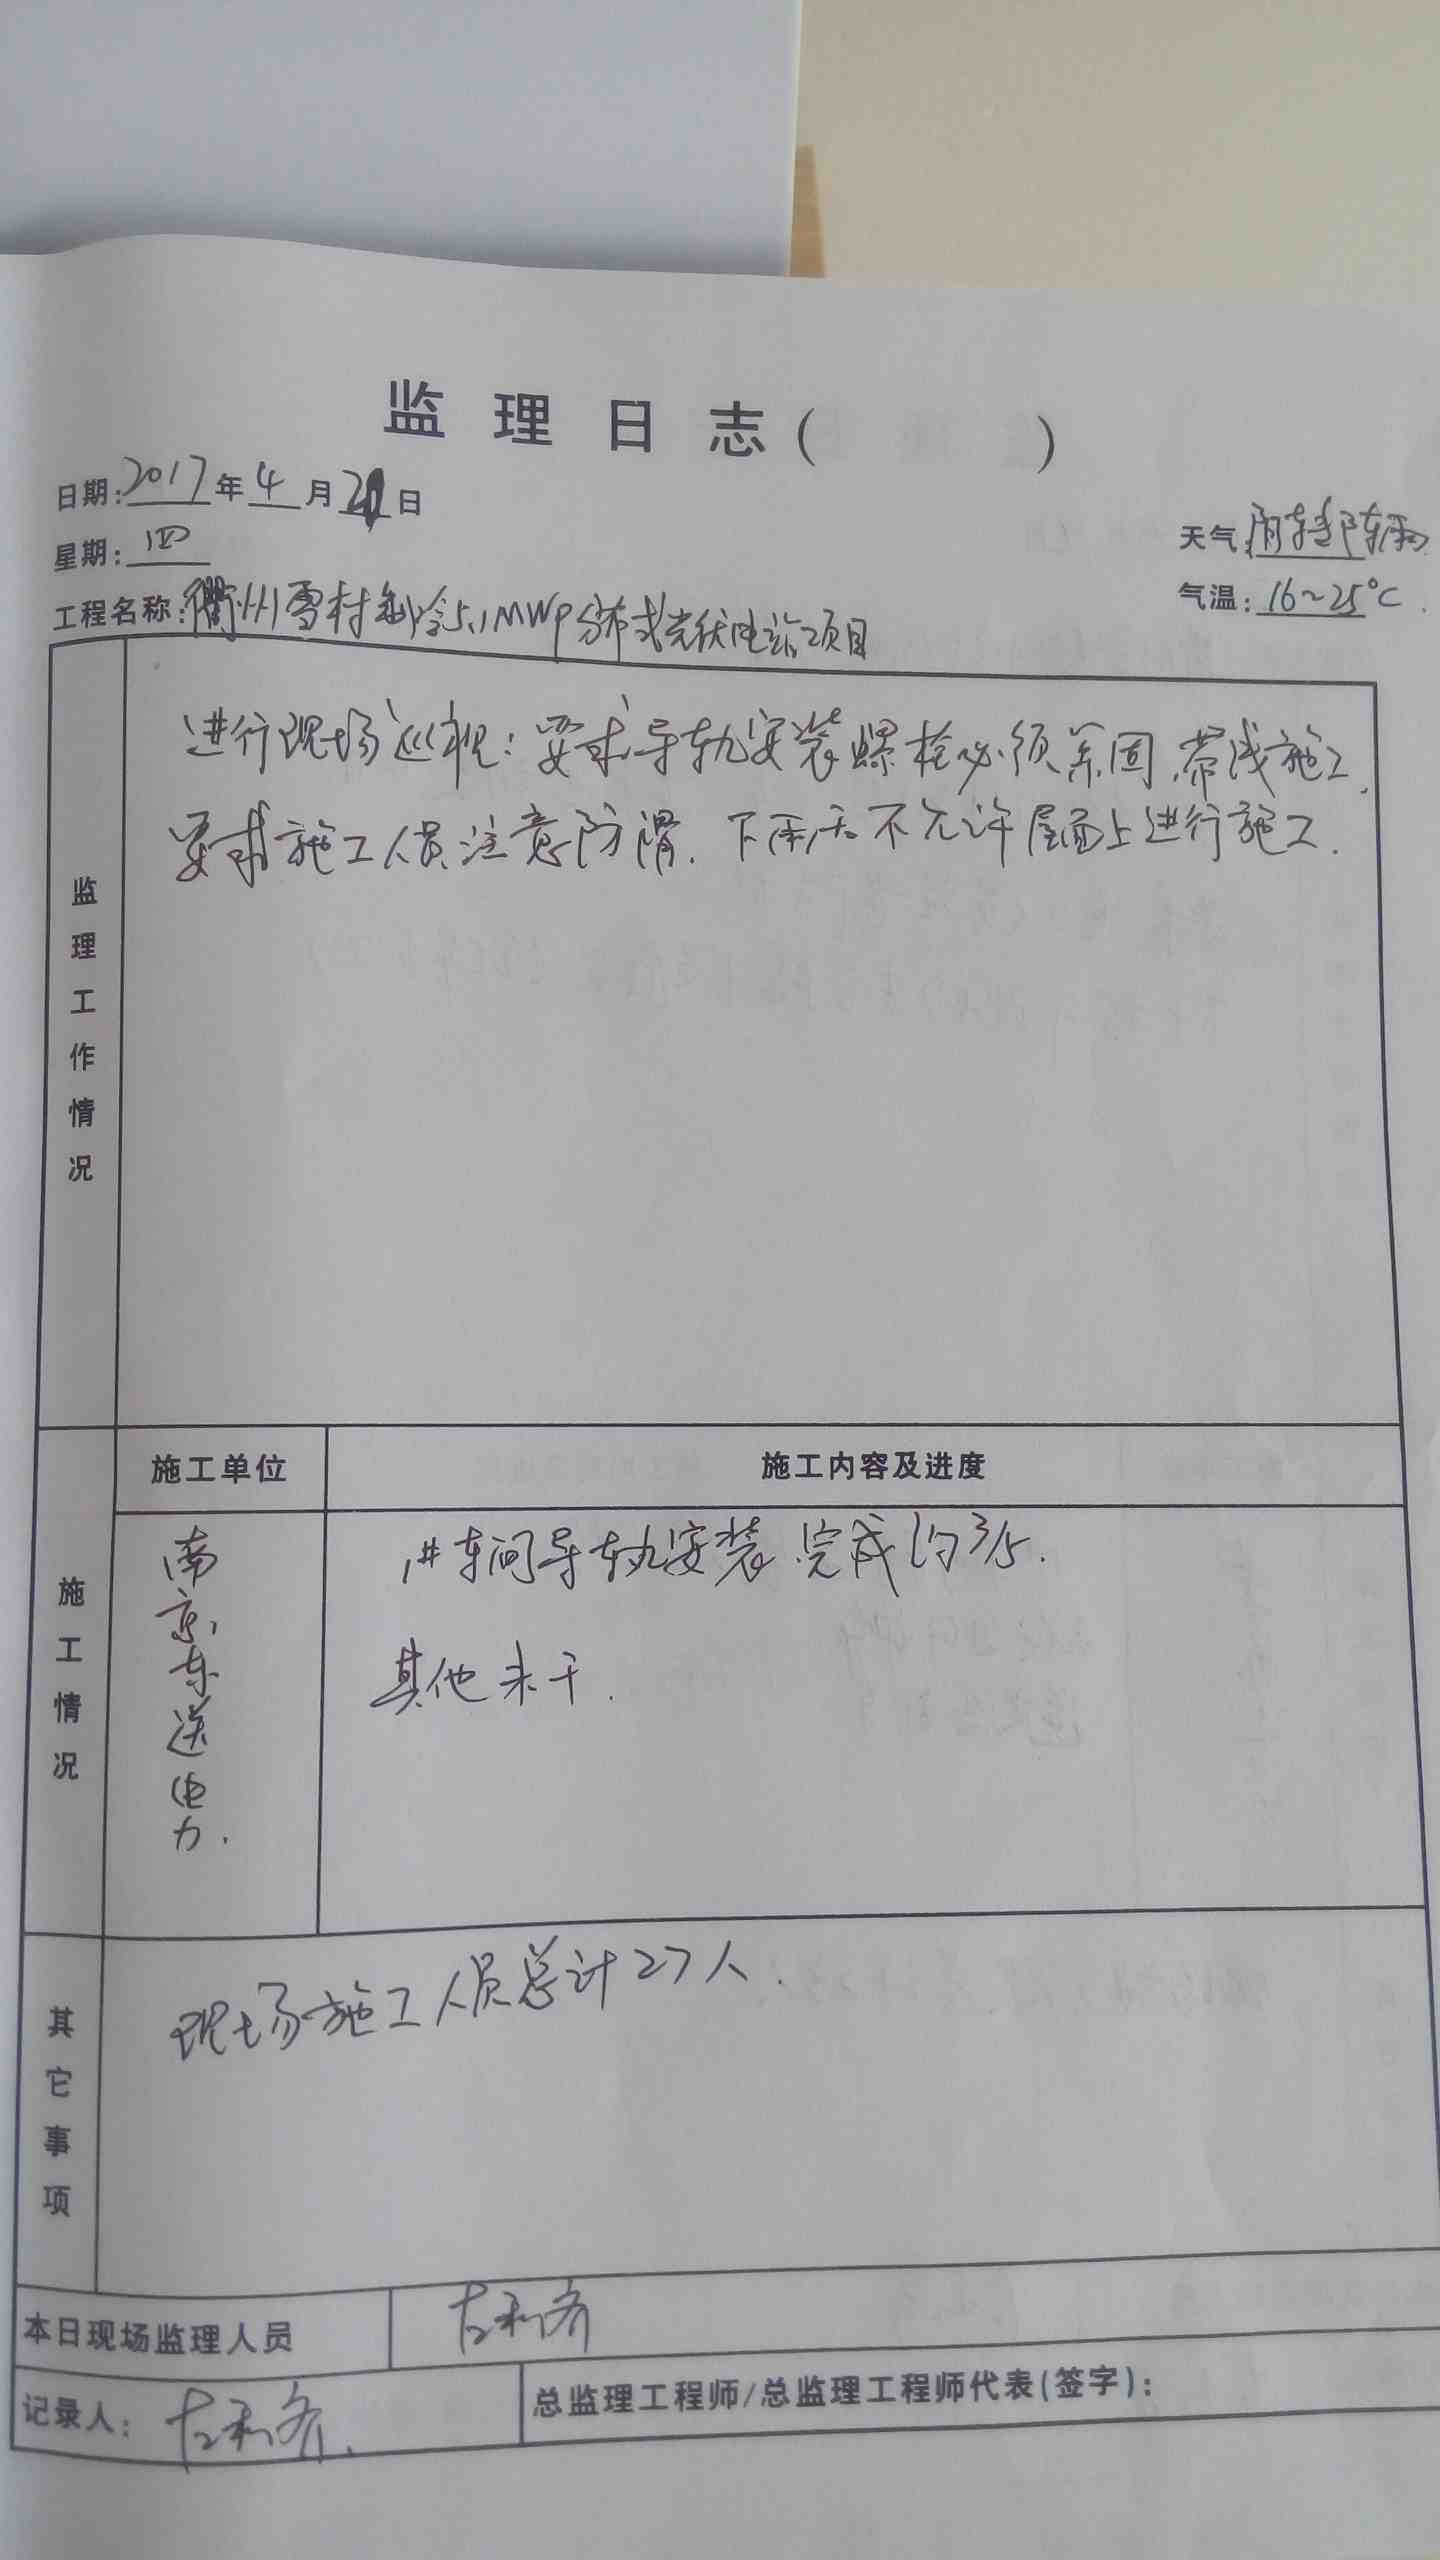 监理日志( )
日期:2017年4月2日
天气:阴转阵雨
星期:四
气温:16~25℃
工程名称:衢州雪村制冷5.1MWp分布式光伏电站项目
监理工作情况
进行现场巡视:要求导轨安装螺栓必须紧固,带线施工,
要求施工人员注意防滑.下雨天不允许屋面上进行施工.
施工情况
施工单位
施工内容及进度
南京东送电力.
1#车间导轨安装完成约3/5.
其他未干.
其它事项
现场施工人员总计27人.
本日现场监理人员
记录人:
总监理工程师/总监理工程师代表(签字):